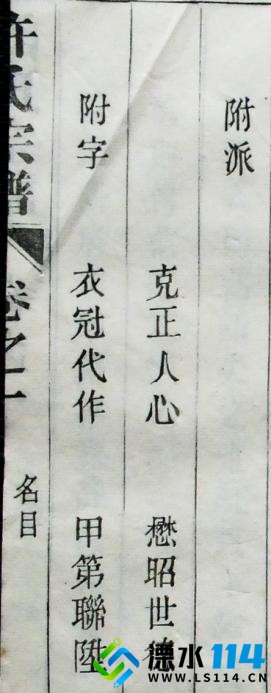 附派
克正人心 懋昭世德
附字 衣冠代作 甲第聯陞
許氏宗譜 卷之二 名目
溧水114
WWW.LS114.CN